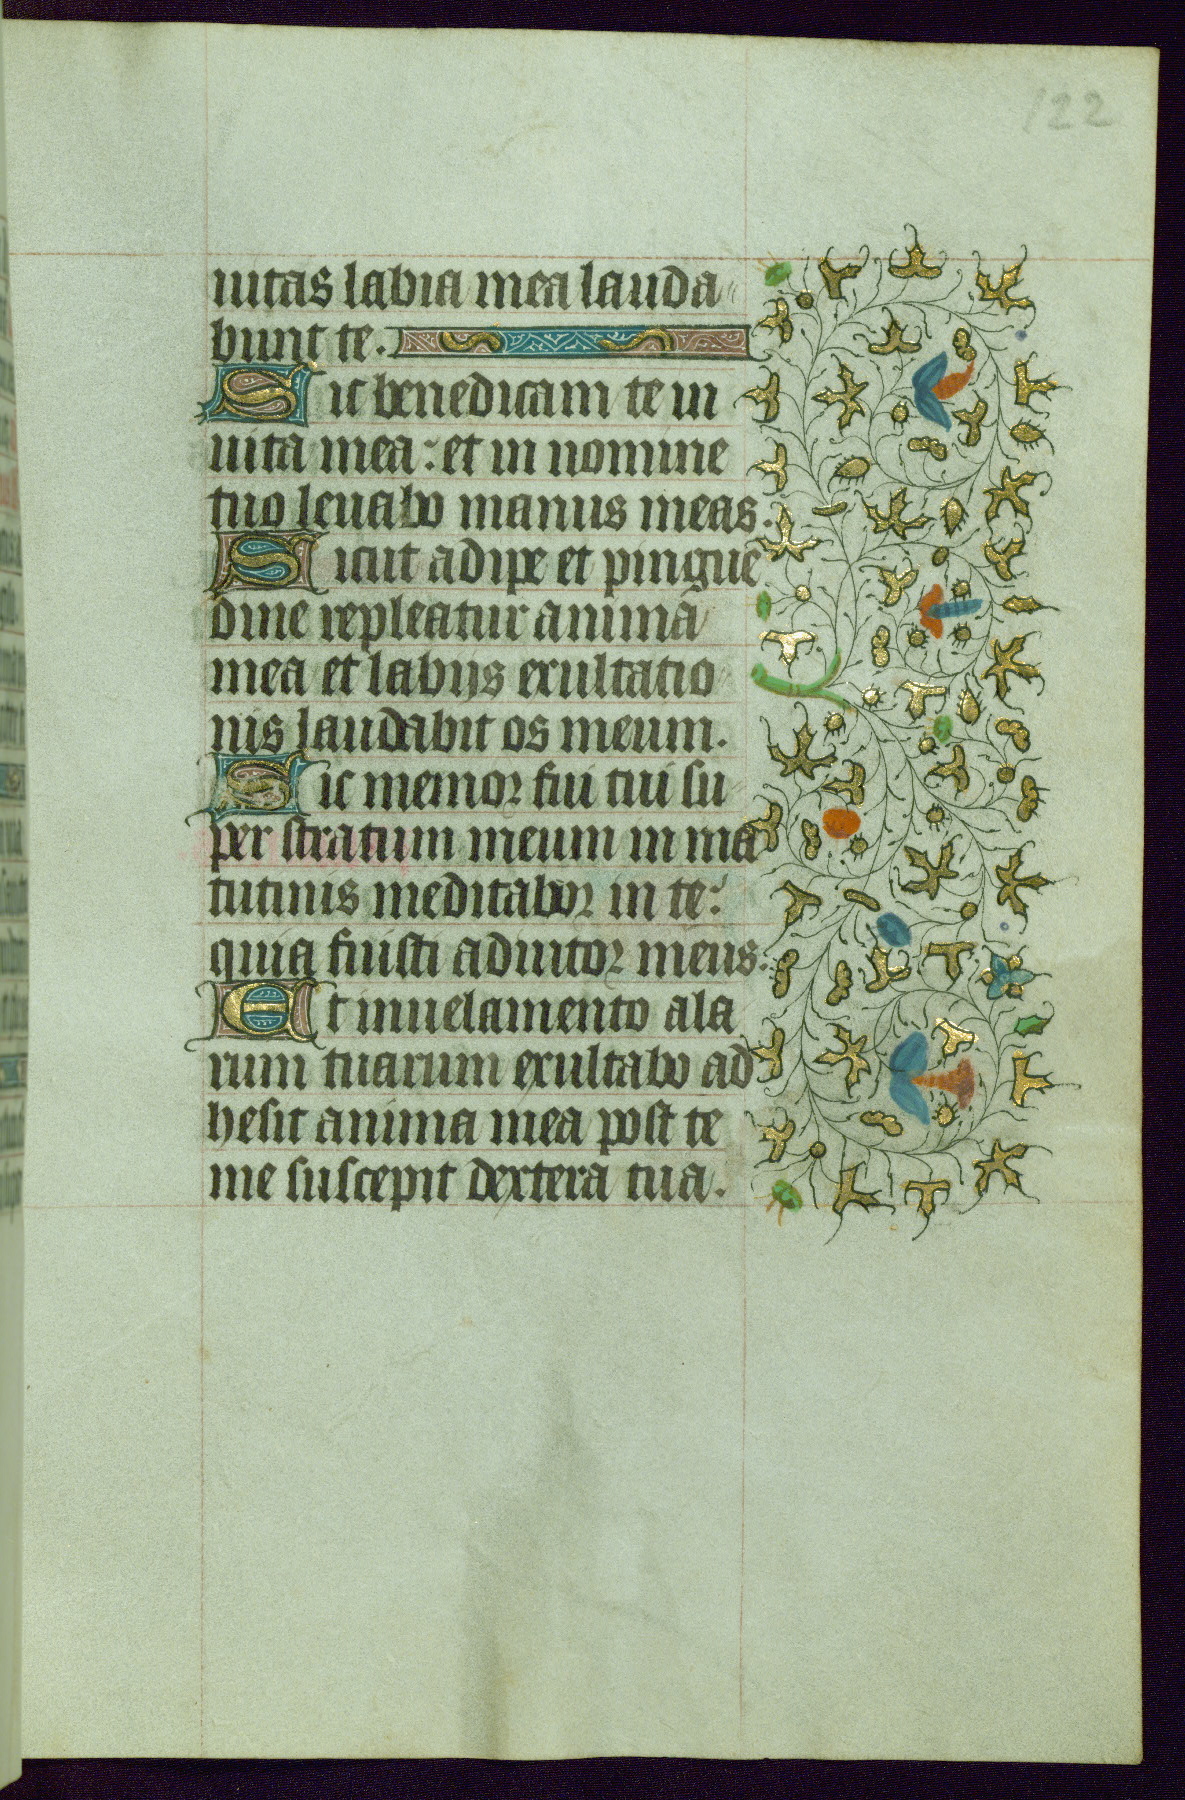 122
uitas labia mea lauda
bunt te.
Sic benedicam te in
uita mea: et in nomine
tuo leuabo manus meas.
Sicut adipe et pingue
dine repleatur anima
mea et labijs exultatio
nis laudabit os meum.
Sic memor fui tui su
per stratum meum in ma
tutinis meditabor in te:
quia fuisti adiutor meus.
Et in uelamento ala
rum tuarum exultabo ad
hesit anima mea post te
me suscepit dextera tua.